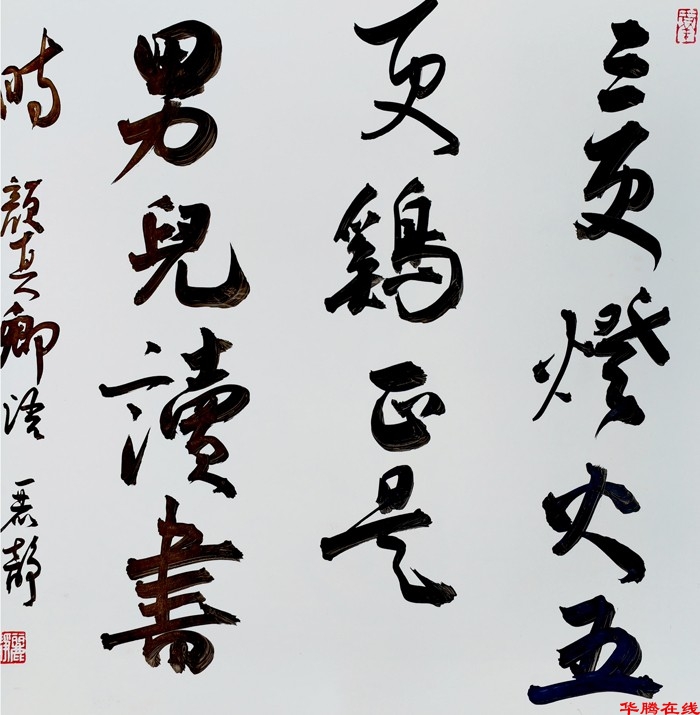 三更燈火五
更鷄正是
男兒讀書
時 顏真卿語 麗靜
华腾在线